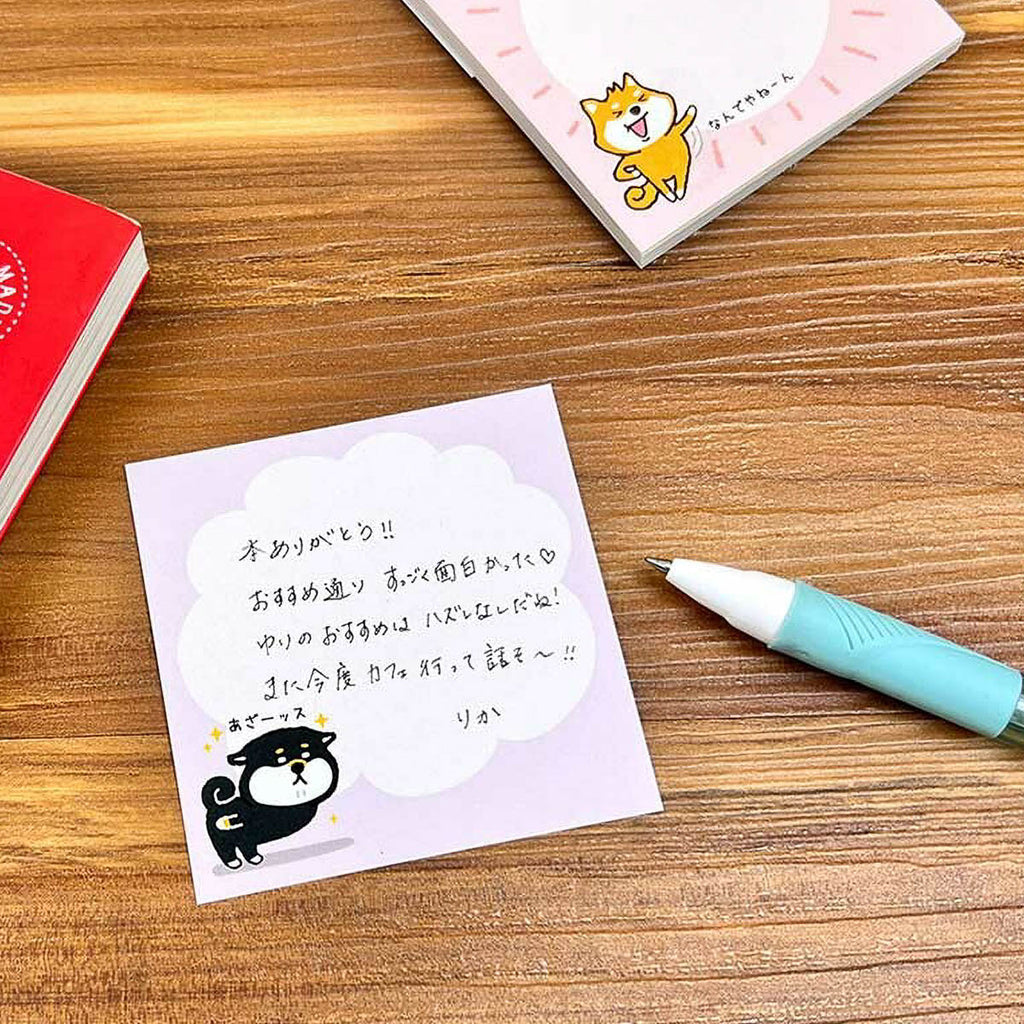 なんでやねーん
MAP
本ありがとう!!
おすすめ通り すっごく面白かった♡
ゆりのおすすめは ハズレなしだね!
また今度 カフェ 行って 話そ〜!!
りか
あざーッス